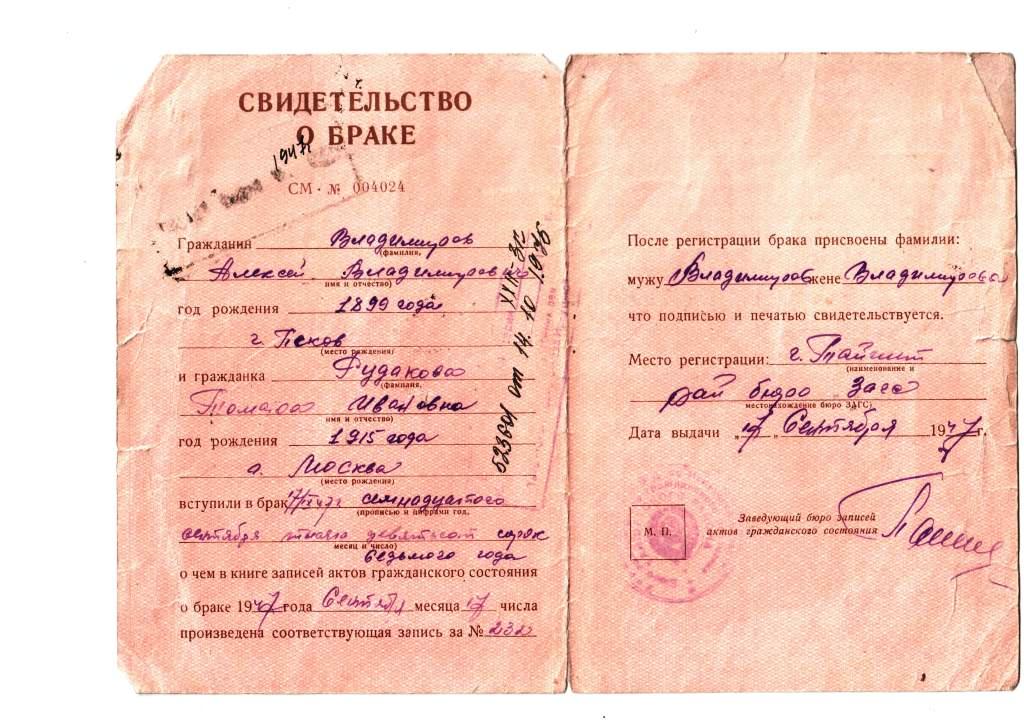 СВИДЕТЕЛЬСТВО
О БРАКЕ
1947г
СМ · № 004024
Гражданин Владимиров
(фамилия,
Алексей Владимирович
имя и отчество)
год рождения 1899 года
г. Псков
(место рождения)
и гражданка Рудакова
(фамилия,
Тамара Ивановна
имя и отчество)
год рождения 1915 года
г. Москва
(место рождения)
вступили в брак 17/IX 47г семнадцатого
(прописью и цифрами год,
сентября тысяча девятьсот сорок
месяц и число)
седьмого года
о чем в книге записей актов гражданского состояния
о браке 1947 года Сентября месяца 17 числа
произведена соответствующая запись за № 232
XXIX-ЗП
523601 от 14. 10. 1975
После регистрации брака присвоены фамилии:
мужу Владимиров жене Владимирова
что подписью и печатью свидетельствуется.
Место регистрации: г. Тайшет
(наименование и
рай бюро Загс
местонахождение бюро ЗАГС)
Дата выдачи „17" Сентября 1947 г.
М. П.
Заведующий бюро записей
актов гражданского состояния